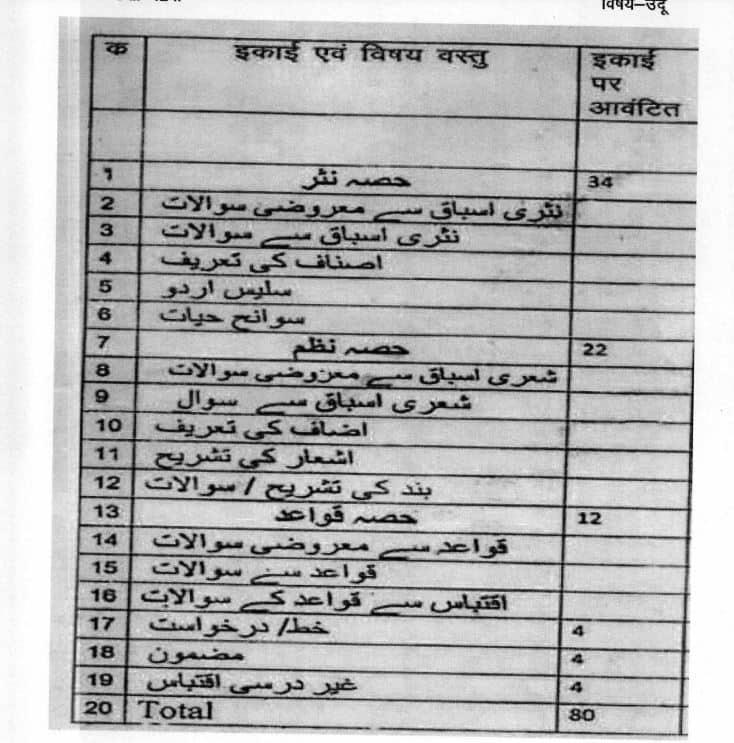 विषय–उर्दू
क इकाई एवं विषय वस्तु इकाई
पर
आवंटित
1 حصہ نثر 34
2 نثری اسباق سے معروضی سوالات
3 نثری اسباق سے سوالات
4 اصناف کی تعریف
5 سلیس اردو
6 سوانح حیات
7 حصہ نظم 22
8 شعری اسباق سے معروضی سوالات
9 شعری اسباق سے سوال
10 اضاف کی تعریف
11 اشعار کی تشریح
12 بند کی تشریح / سوالات
13 حصہ قواعد 12
14 قواعد سے معروضی سوالات
15 قواعد سے سوالات
16 اقتباس سے قواعد کے سوالات
17 خط/ درخواست 4
18 مضمون 4
19 غیر درسی اقتباس 4
20 Total 80